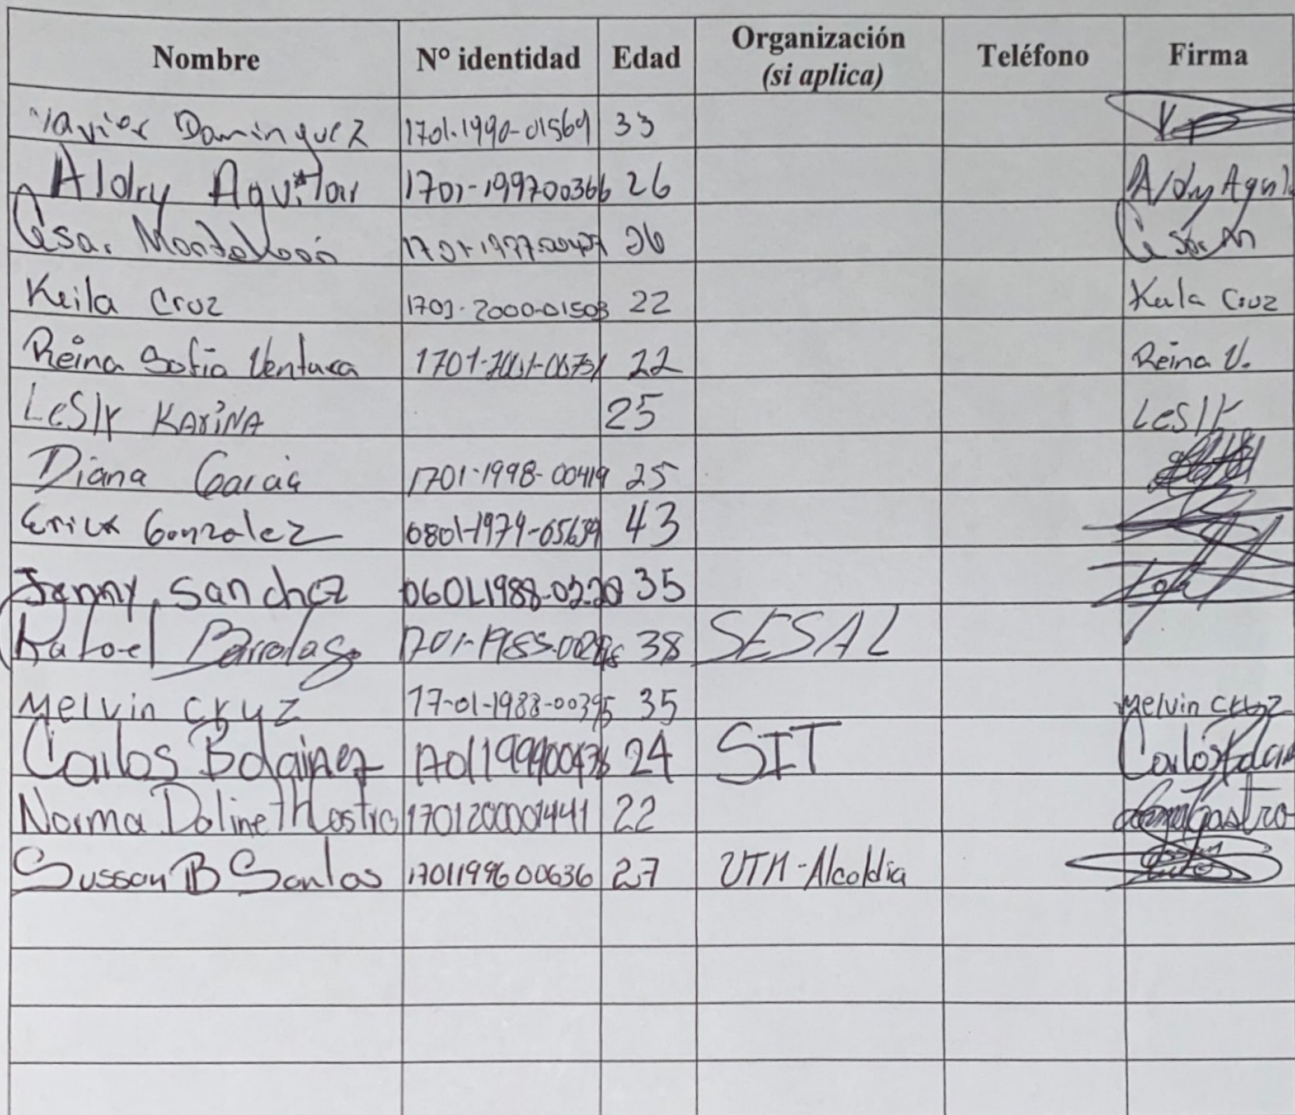 Nombre Nº identidad Edad Organización (si aplica) Teléfono Firma
Javier Dominguez 1701-1990-01569 33
Aldry Aguilar 1701-199700366 26 Aldry Aguil
Cesar 26 Cesar M
Keila Cruz 1701-2000-01503 22 Keila Cruz
Reina Sofia Ventura 22 Reina V.
Lesly Karina 25 Lesly
Diana Garcia 1701-1998-00419 25
Erick Gonzalez 0801-1979-05639 43
Jenny Sanchez 35
Rafael 38 SESAL
Melvin Cruz 17-01-1988-00395 35 Melvin Cruz
Carlos Bolainez 24 SIT Carlos
Norma Dolineth Castro 1701200001441 22 Castro
Susson B Santos 1701199600636 27 UTM-Alcoldia